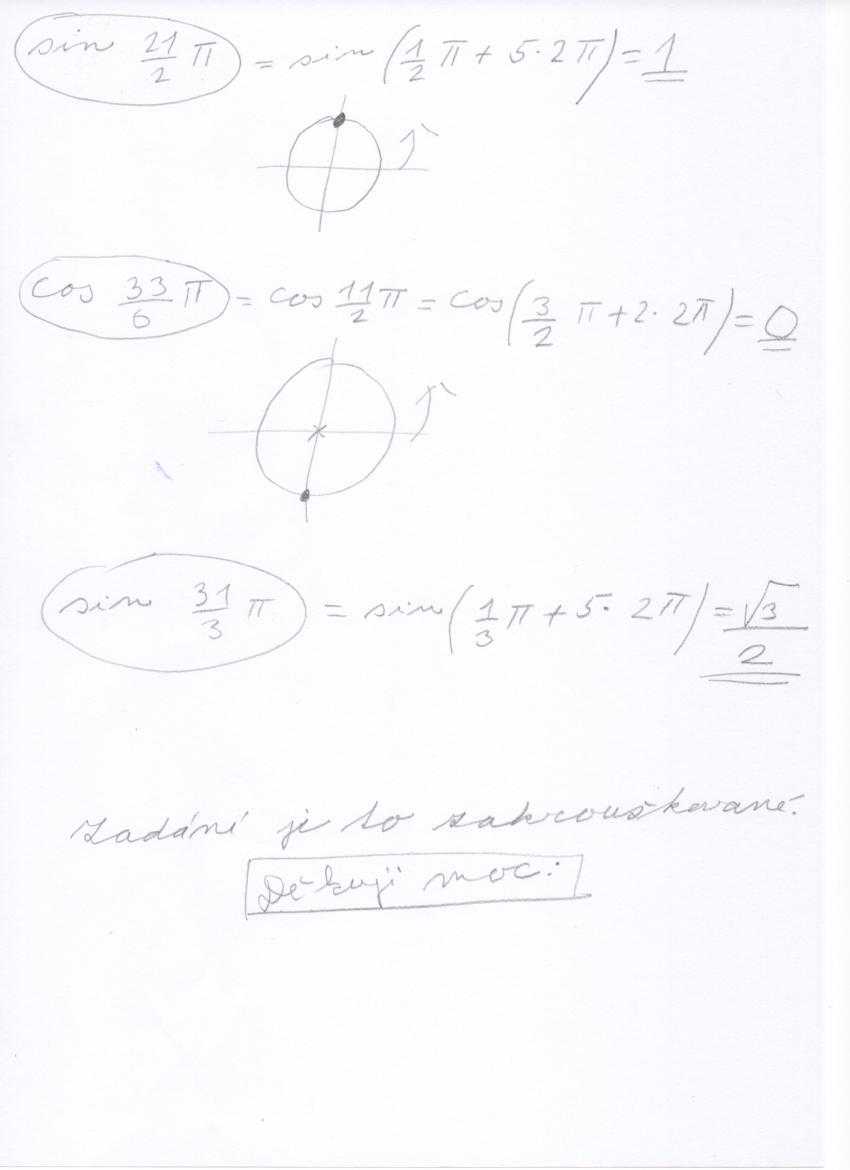 sin 21/2 π = sin (1/2 π + 5·2π) = 1
cos 33/6 π = cos 11/2 π = cos (3/2 π + 2·2π) = 0
sin 31/3 π = sin (1/3 π + 5·2π) = √3/2
Zadání je to zakroužkované.
Děkuji moc.